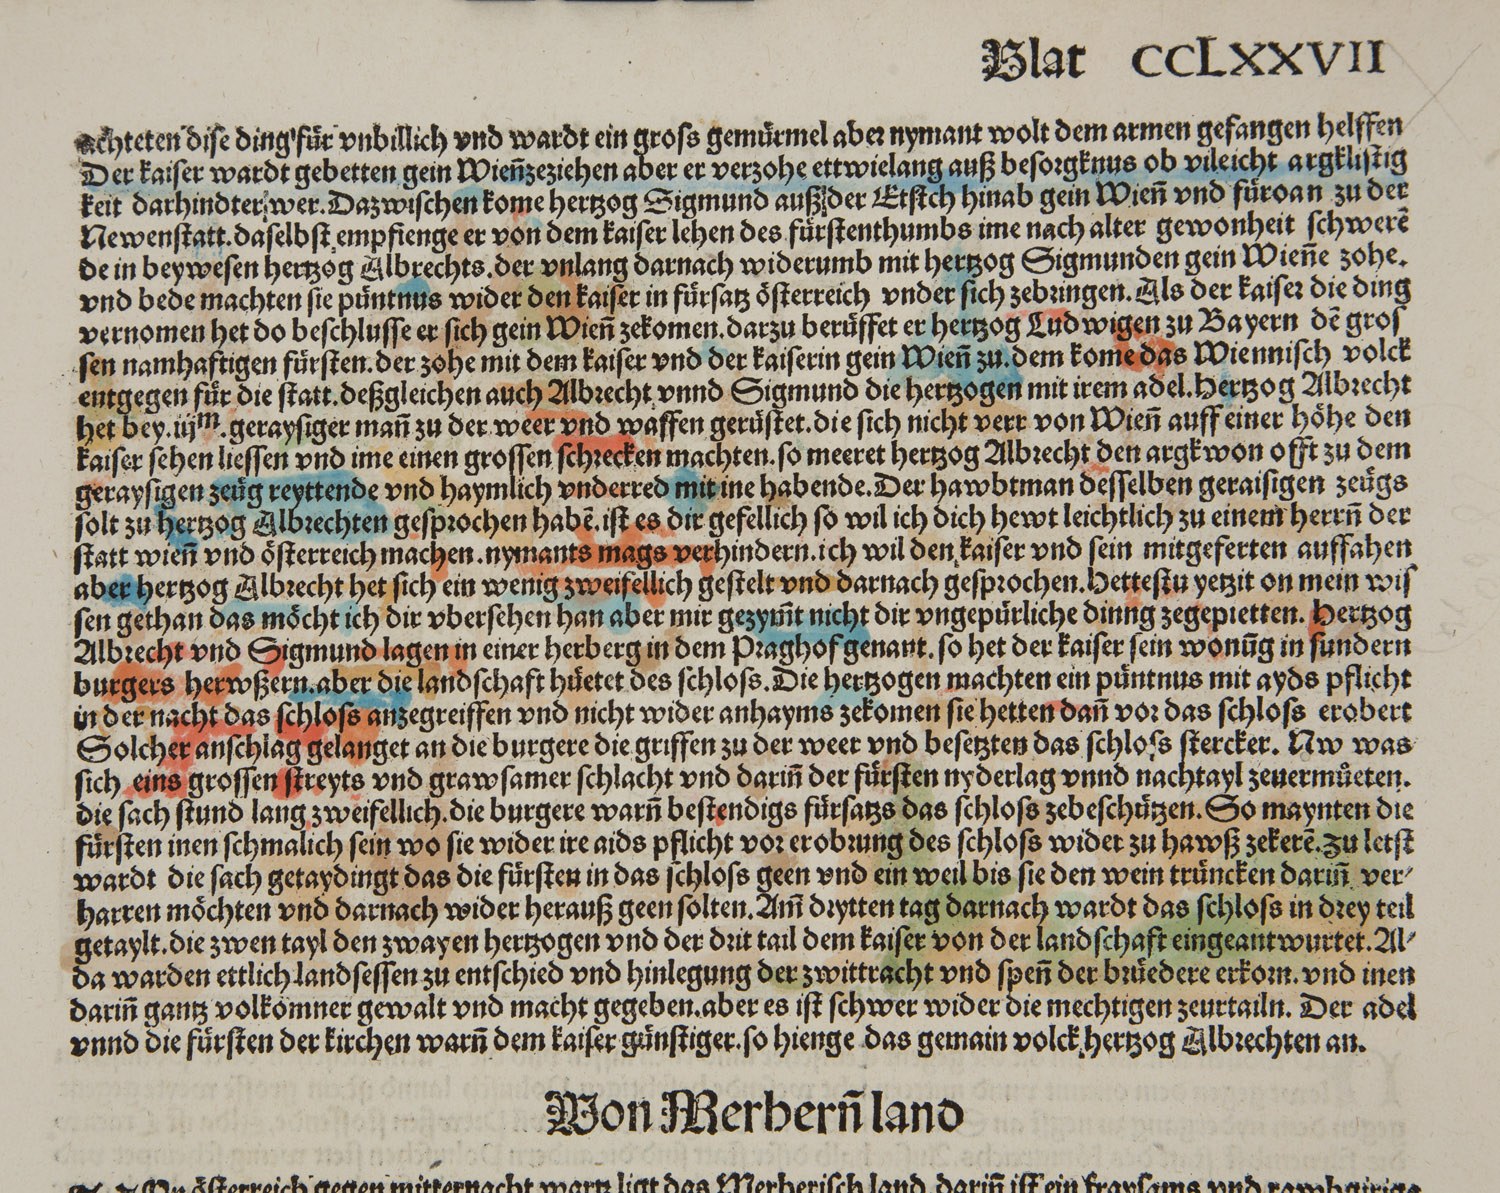 Blat CCLXXVII
achteten dise ding für vnbillich vnd wardt ein gross gemürmel aber nymant wolt dem armen gefangen helffen
Der kaiser wardt gebetten gein Wien̄ zeziehen aber er verzohe ettwielang auß besorgknus ob vileicht argklistig
keit darhindter wer. Dazwischen kome hertzog Sigmund auß der Etsch hinab gein Wien̄ vnd füroan zu der
Newenstatt. daselbst empfienge er von dem kaiser lehen des fürstenthumbs ime nach alter gewonheit schwerē
de in beywesen hertzog Albrechts. der vnlang darnach widerumb mit hertzog Sigmunden gein Wien̄e zohe.
vnd bede machten sie püntnus wider den kaiser in fürsatz österreich vnder sich zebringen. Als der kaiser die ding
vernomen het do beschlusse er sich gein Wien̄ zekomen. darzu berüffet er hertzog Ludwigen zu Bayern dē gros
sen namhaftigen fürsten. der zohe mit dem kaiser vnd der kaiserin gein Wien̄ zu. dem kome das Wiennisch volck
entgegen für die statt. deßgleichen auch Albrecht vnnd Sigmund die hertzogen mit irem adel. Hertzog Albrecht
het bey .iijᵐ. geraysiger man̄ zu der weer vnd waffen gerüstet. die sich nicht verr von Wien̄ auff einer höhe den
kaiser sehen liessen vnd ime einen grossen schrecken machten. so meeret hertzog Albrecht den argkwon offt zu dem
geraysigen zeüg reyttende vnd haymlich vnderred mit ine habende. Der hawbtman desselben geraisigen zeügs
solt zu hertzog Albrechten gesprochen habē. ist es dir gefellich so wil ich dich hewt leichtlich zu einem herrn̄ der
statt wien̄ vnd österreich machen. nymants mags verhindern. ich wil den kaiser vnd sein mitgeferten auffahen
aber hertzog Albrecht het sich ein wenig zweifellich gestelt vnd darnach gesprochen. Hettestu yetzit on mein wis
sen gethan das möcht ich dir vbersehen han aber mir gezym̄t nicht dir vngepürliche dinng zegepietten. Hertzog
Albrecht vnd Sigmund lagen in einer herberg in dem Praghof genant. so het der kaiser sein wonūg in sundern
burgers hewßern. aber die landschaft hüetet des schloss. Die hertzogen machten ein püntnus mit ayds pflicht
in der nacht das schloss anzegreiffen vnd nicht wider anhayms zekomen sie hetten dan̄ vor das schloss erobert
Solcher anschlag gelanget an die burgere die griffen zu der weer vnd besetzten das schloss stercker. Nw was
sich eins grossen streyts vnd grawsamer schlacht vnd darin̄ der fürsten nyderlag vnnd nachtayl zeuermůeten.
die sach stund lang zweifellich. die burgere warn̄ bestendigs fürsatzs das schloss zebeschützen. So maynten die
fürsten inen schmalich sein wo sie wider ire aids pflicht vor erobrung des schloss wider zu hawß zekerē. Zu letst
wardt die sach getaydingt das die fürsten in das schloss geen vnd ein weil bis sie den wein trüncken darin̄ ver⸗
harren möchten vnd darnach wider herauß geen solten. Am̄ drytten tag darnach wardt das schloss in drey teil
getaylt. die zwen tayl den zwayen hertzogen vnd der drit tail dem kaiser von der landschaft eingeantwurtet. Al⸗
da warden ettlich landsessen zu entschied vnd hinlegung der zwittracht vnd spen̄ der brüedere erkorn. vnd inen
darin̄ gantz volkomner gewalt vnd macht gegeben. aber es ist schwer wider die mechtigen zeurtailn. Der adel
vnnd die fürsten der kirchen warn̄ dem kaiser günstiger. so hienge das gemain volck hertzog Albrechten an.
Von Merhern̄ land
österreich gegen mitternacht wartz ligt das Merherisch land. darin̄ ist ein fraysams vnd rawbgirigs